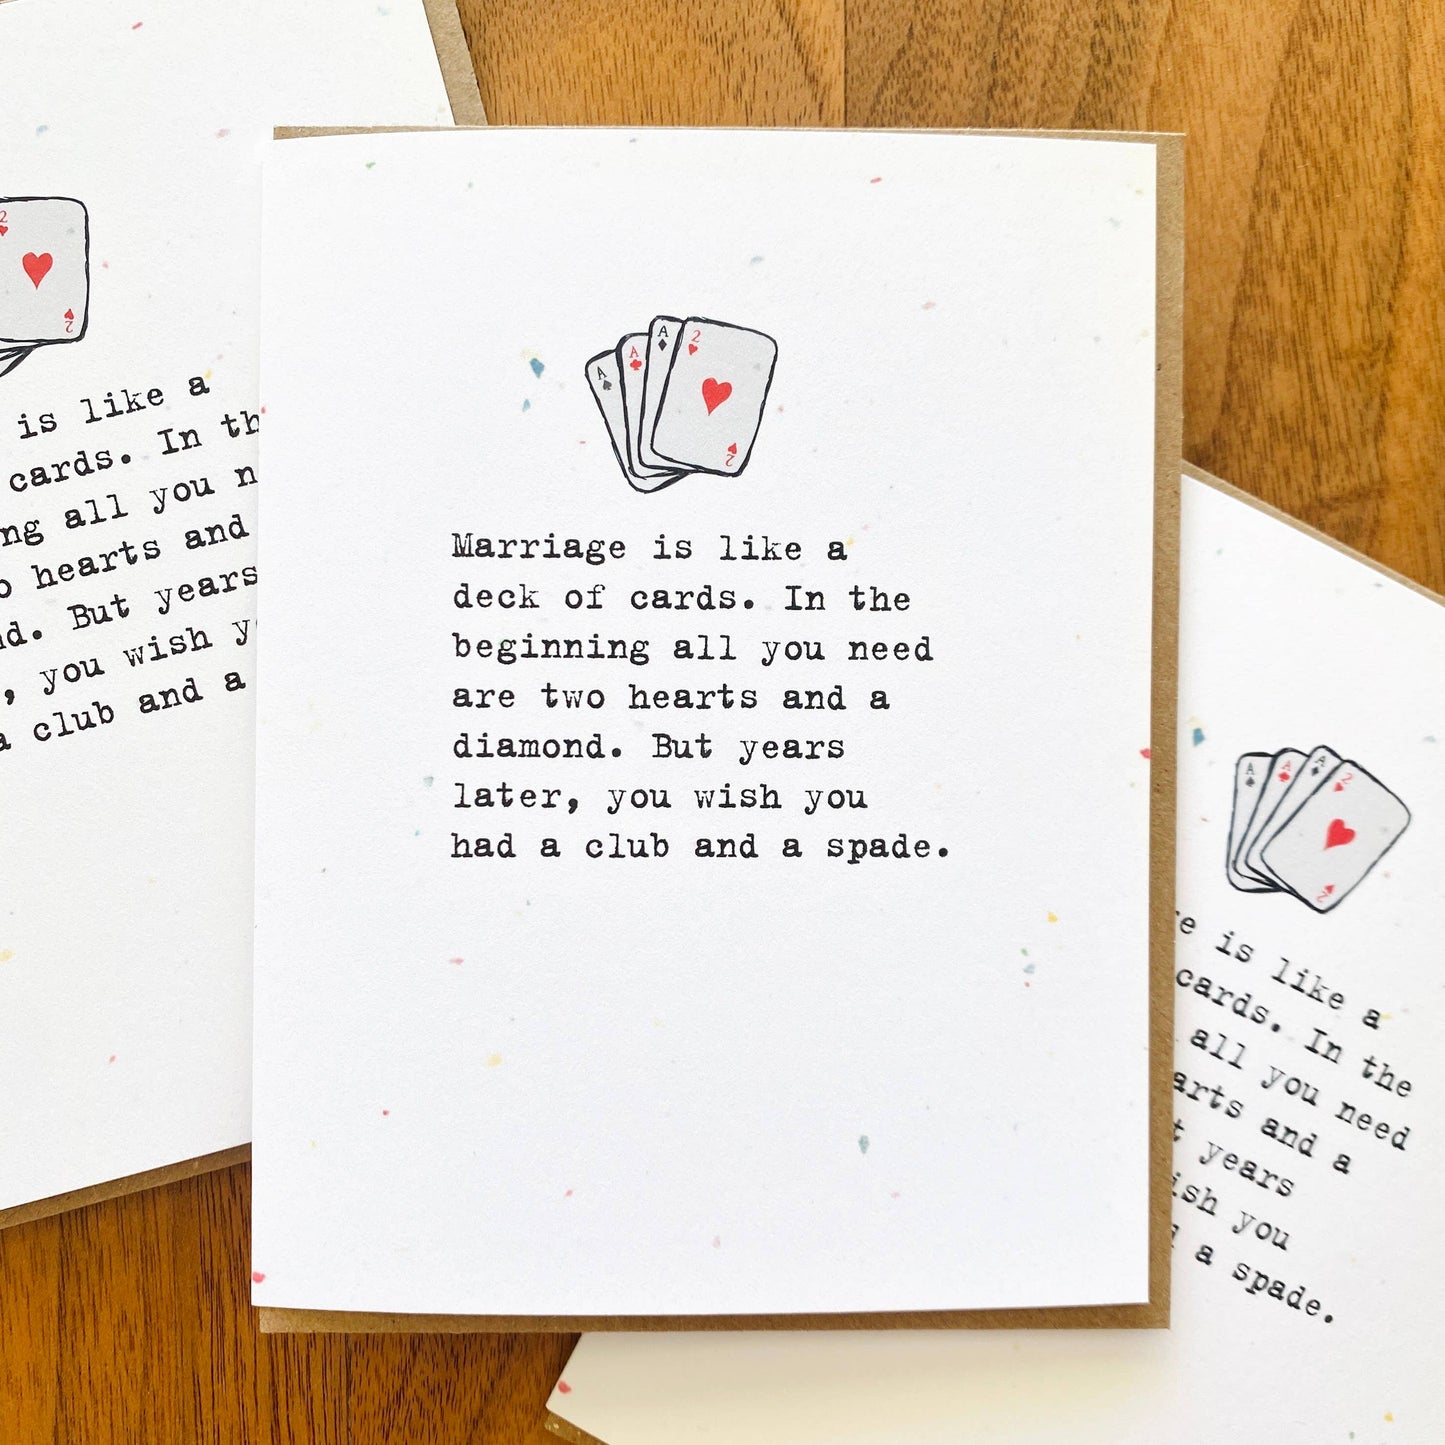 2
2
is like a
cards. In th
ng all you n
hearts and
d. But years
, you wish y
a club and a
A
A
A
2
2
Marriage is like a
deck of cards. In the
beginning all you need
are two hearts and a
diamond. But years
later, you wish you
had a club and a spade.
A
A
A
2
2
e is like a
cards. In the
all you need
arts and a
t years
ish you
a spade.